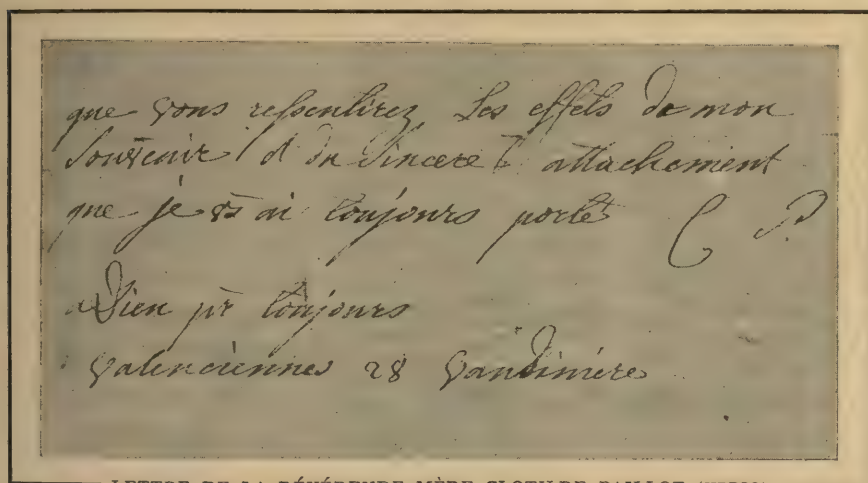 que vous ressentirez Les effets de mon
Souvenir et du Sincere attachement
que je vs ai toujours porté C P.
a Dieu pr toujours
valenciennes 28 vandimiere
LETTRE DE LA RÉVÉRENDE MÈRE CLOTILDE PAILLOT